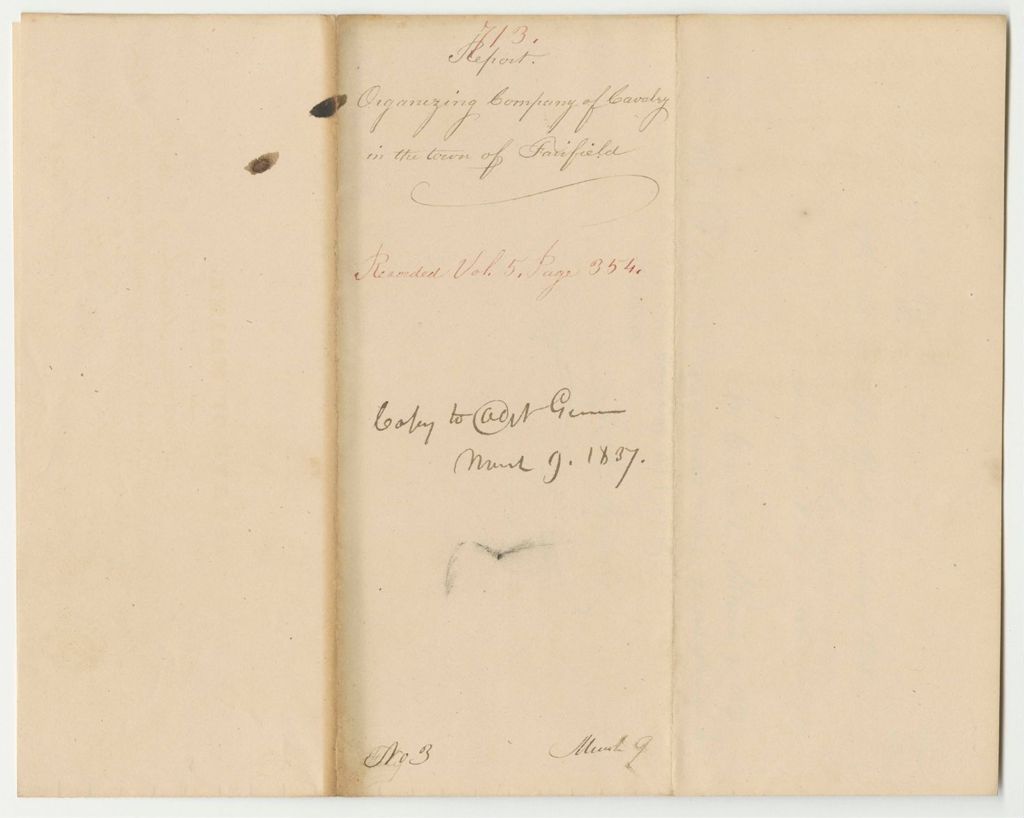 713.
Report.
Organizing Company of Cavalry
in the town of Fairfield
Recorded Vol. 5. Page 354.
Copy to Adjt Gen
March 9. 1837.
No 3
March 9